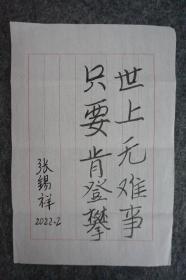 世上无难事
只要肯登攀
张锡祥
2022.2